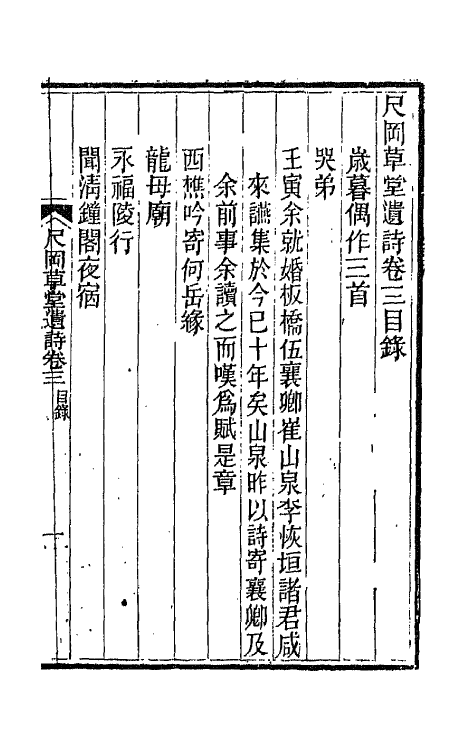 尺岡草堂遺詩卷三目錄
歲暮偶作三首
哭弟
壬寅余就婚板橋伍襄卿崔山泉李恢垣諸君咸
來讌集於今已十年矣山泉昨以詩寄襄卿及
余前事余讀之而嘆爲賦是章
西樵吟寄何岳緣
龍母廟
永福陵行
聞淸鐘閣夜宿
尺岡草堂遺詩卷三 目錄 一